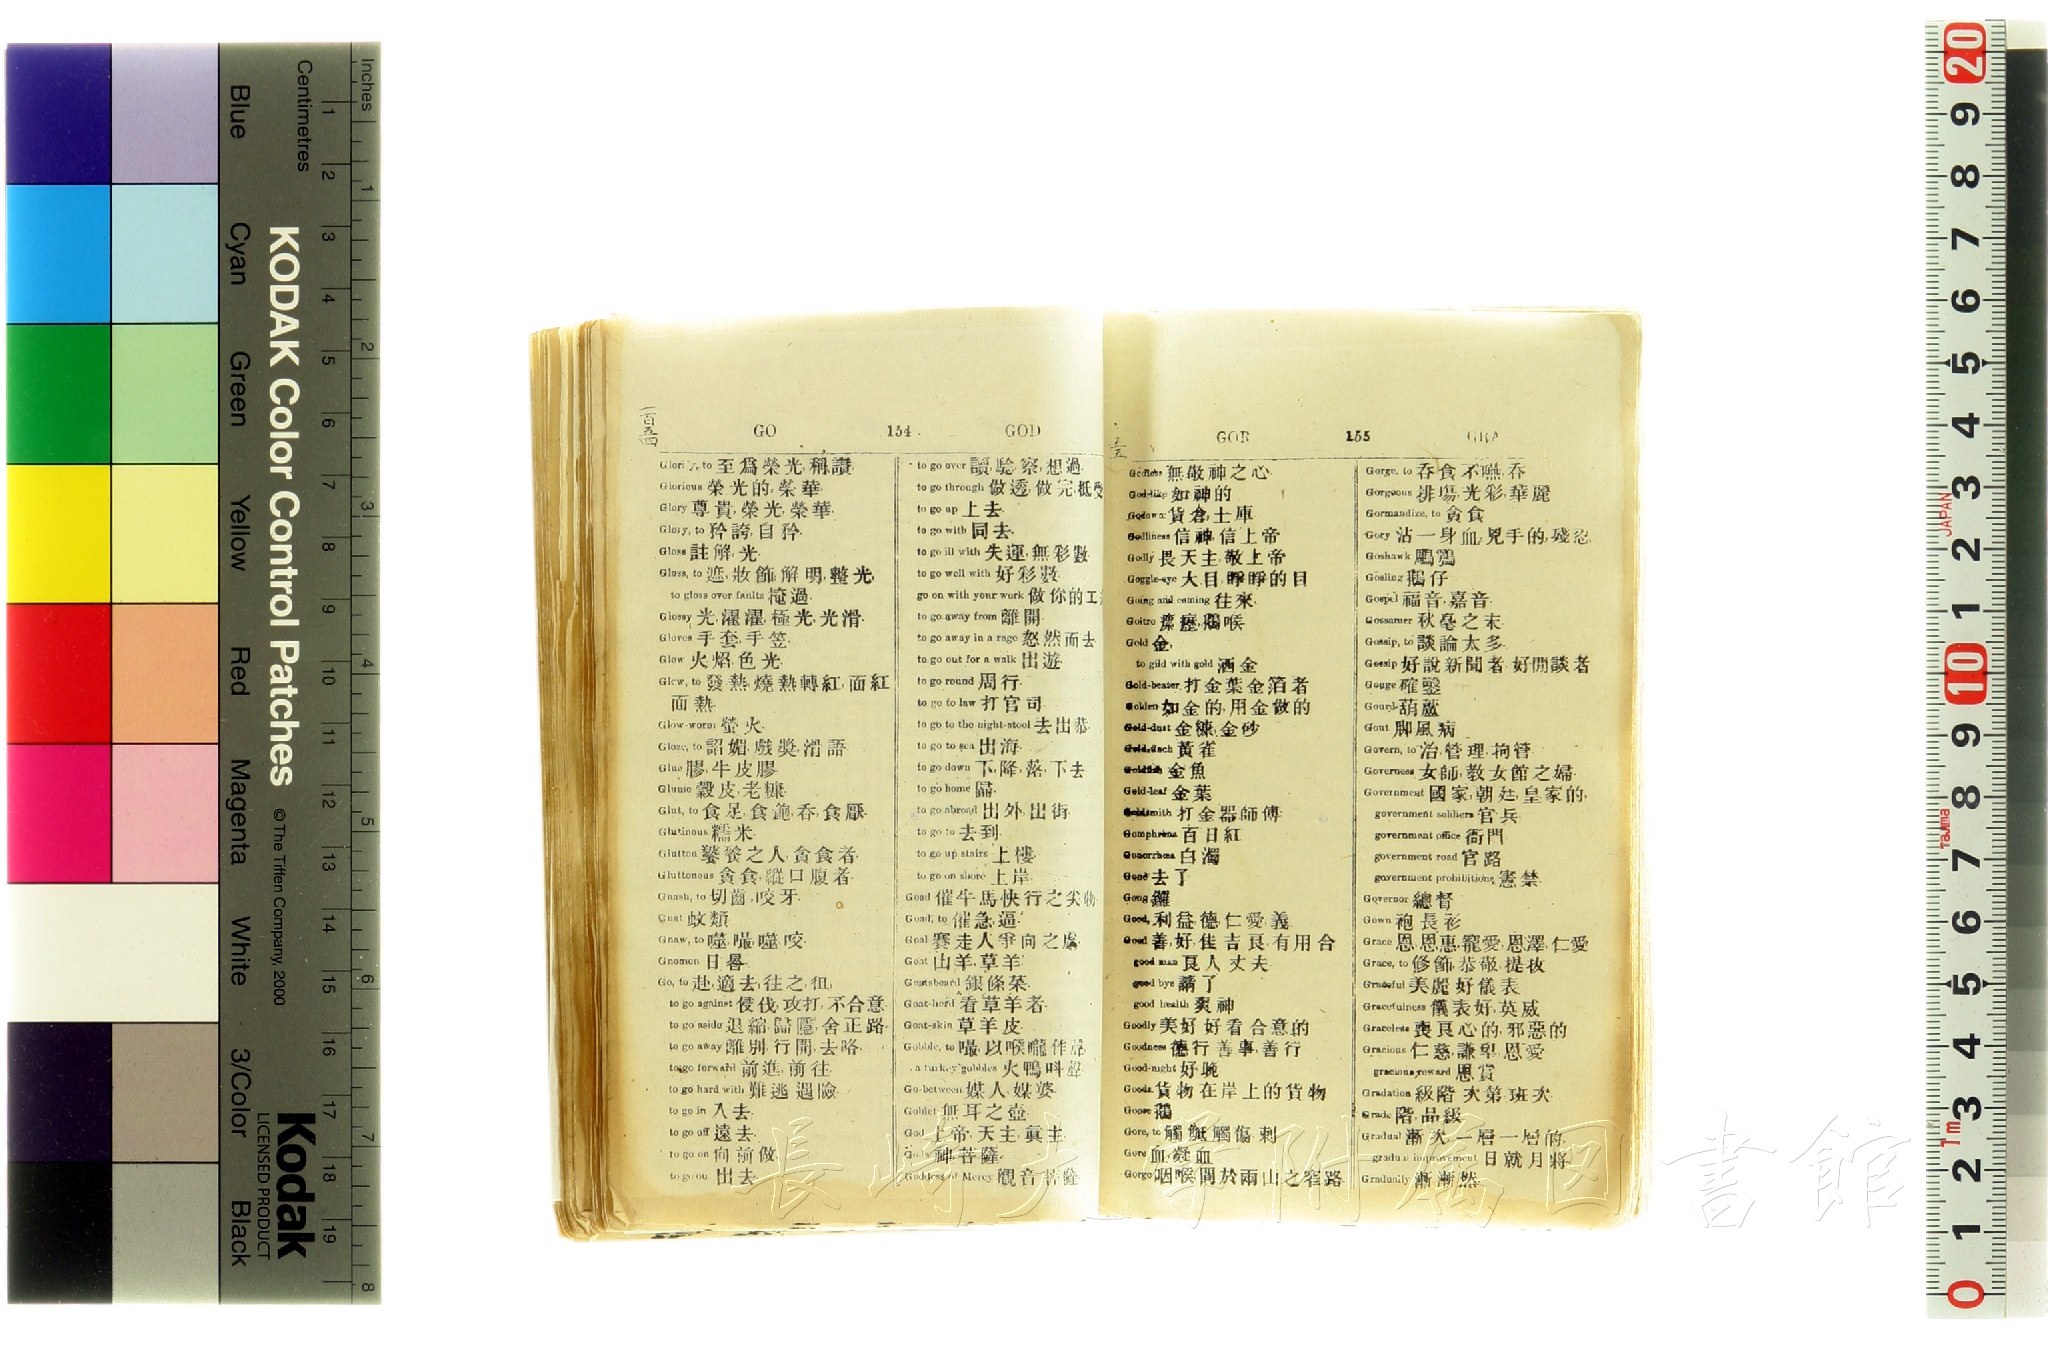 Inches
Centimetres
KODAK Color Control Patches © The Tiffen Company, 2000
Kodak
LICENSED PRODUCT
Blue
Cyan
Green
Yellow
Red
Magenta
White
3/Color
Black
一百五四
GO 154 GOD
Glorify, to 至爲榮光,稱讚
Glorious 榮光的,榮華
Glory 尊貴,榮光,榮華
Glory, to 矜誇,自矜
Gloss 註解,光
Gloss, to 遮,妝飾,解明,整光
to gloss over faults 掩過
Glossy 光濯濯,極光,光滑
Gloves 手套,手笠
Glow 火焰,色光
Glow, to 發熱,燒熱轉紅,面紅
面熱
Glow-worm 螢火
Gloze, to 諂媚,戲獎,滑語
Glue 膠,牛皮膠
Glume 穀皮,老糠
Glut, to 食足,食飽,吞,食厭
Glutinous 糯米
Glutton 饕餮之人,貪食者
Gluttonous 貪食,縱口腹者
Gnash, to 切齒,咬牙
Gnat 蚊類
Gnaw, to 噬,嘬,噬,咬
Gnomon 日晷
Go, to 赴,適,去,往,之,徂
to go against 侵伐,攻打,不合意
to go aside 退縮,歸隱,舍正路
to go away 離別,行開,去咯
to go forward 前進,前往
to go hard with 難逃遇險
to go in 入去
to go off 遠去
to go on 向前做
to go ou 出去
to go over 讀,驗,察,想過
to go through 做透,做完,抵受
to go up 上去
to go with 同去
to go ill with 失運,無彩數
to go well with 好彩數
go on with your work 做你的工
to go away from 離開
to go away in a rage 怒然而去
to go out for a walk 出遊
to go round 周行
to go to law 打官司
to go to the night-stool 去出恭
to go to sea 出海
to go down 下,降,落,下去
to go home 歸
to go abroad 出外,出街
to go to 去到
to go up stairs 上樓
to go on shore 上岸
Goad 催牛馬快行之尖物
Goad, to 催急,逼
Goal 賽走人爭向之處
Goat 山羊,草羊
Goatsbeard 銀條菜
Goat-herd 看草羊者
Goat-skin 草羊皮
Gobble, to 嘬,以喉嚨作聲
a turkey gobbles 火鴨呌聲
Go-between 媒人,媒婆
Goblet 無耳之壺
God 上帝,天主,眞主
神,菩薩
Goddess of Mercy 觀音菩薩
GOR 155 GRA
Godless 無敬神之心
God-like 如神的
Godown 貨倉,土庫
Godliness 信神,信上帝
Godly 畏天主,敬上帝
Goggle-eye 大目,睜睜的目
Going and coming 往來
Goitre 瘰癧,鵝喉
Gold 金
to gild with gold 洒金
Gold-beater 打金葉金箔者
Golden 如金的,用金做的
Gold-dust 金鍊,金砂
Goldfinch 黃雀
Goldfish 金魚
Gold-leaf 金葉
Goldsmith 打金器師傅
Gomphrena 百日紅
Gonorrhœa 白濁
Gone 去了
Gong 鑼
Good, 利益,德,仁,愛,義
Good 善,好,佳,吉,良,有用,合
good man 良人,丈夫
good bye 請了
good health 爽神
Goodly 美好,好看,合意的
Goodness 德行,善事,善行
Good-night 好晚
Goods 貨物,在岸上的貨物
Goose 鵝
Gore, to 觸,觝,觸傷,刺
Gore 血,凝血
Gorge 咽喉,間於兩山之窄路
Gorge, to 吞食,不嚥,吞
Gorgeous 排塲,光彩,華麗
Gormandize, to 貪食
Gory 沾一身血,兇手的,殘忍
Goshawk
Gosling 鵝仔
Gospel 福音,嘉音
Gossamer 秋毫之末
Gossip, to 談論太多
Gossip 好說新聞者,好閒談者
Gouge
Gourd 葫蘆
Gout 脚風病
Govern, to 治,管理,拘管
Governess 女師,敎女館之婦
Government 國家,朝廷,皇家的
government soldiers 官兵
government office 衙門
government road 官路
government prohibitions 憲禁
Governor 總督
Gown 袍,長衫
Grace 恩,恩惠,寵愛,恩澤,仁愛
Grace, to 修飾,恭敬,提拔
Graceful 美麗,好儀表
Gracefulness 儀表好,英威
Graceless 喪良心的,邪惡的
Gracious 仁慈,謙卑,恩愛
gracious reward 恩賞
Gradation 級,階,次第,班次
Grade 階,品級
Gradual 漸次,一層一層的
gradual improvement 日就月將
Gradually 漸漸然
長崎大学附属図書館
20
9
8
7
6
5
4
3
2
1
10
9
8
7
6
5
4
3
2
1
0
JAPAN
Tajima
1m